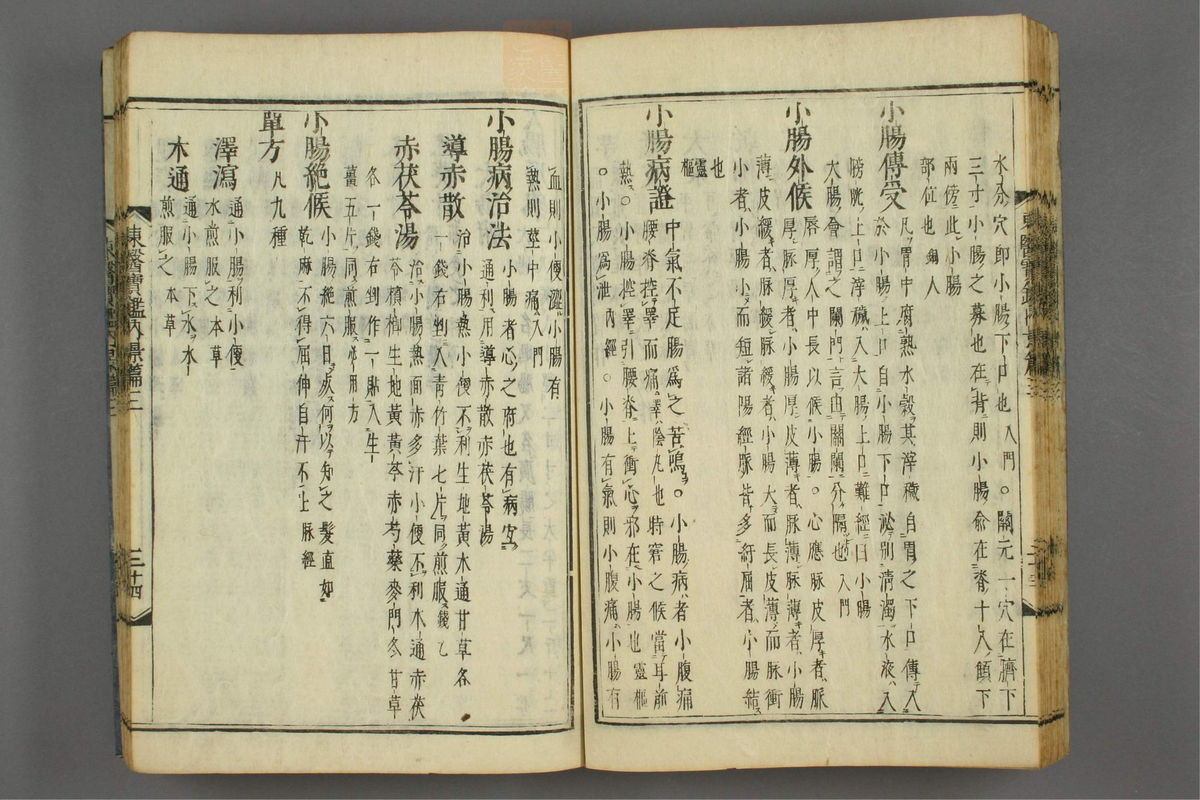 水分穴即小腸下口也入門○關元一穴在臍下
三寸小腸之募也在背則小腸俞在脊十八顀下
兩傍此小腸
部位也銅人
小腸傳受凡胃中腐熟水穀其滓穢自胃之下口傳入
於小腸上口自小腸下口泌別清濁水液入
膀胱上口滓穢入大腸上口難經曰小腸
大腸會謂之闌門言由關闌分隔也入門
小腸外候唇厚人中長以候小腸○心應脉皮厚者脉
厚脉厚者小腸厚皮薄者脉薄脉薄者小腸
薄皮緩者脉緩脉緩者小腸大而長皮薄而脉衝
小者小腸小而短諸陽經脉皆多紆屈者小腸結
也靈樞
小腸病證中氣不足腸爲之苦鳴○小腸病者小腹痛
腰脊控睪而痛睪陰丸也時窘之候當耳前
熱○小腸控睪引腰脊上衝心邪在小腸也靈樞
○小腸爲泄內經○小腸有氣則小腹痛小腸有
血則小便澁小腸有
熱則莖中痛入門
小腸病治法小腸者心之府也有病宜
通利用導赤散赤茯苓湯
導赤散治小腸熱小便不利生地黃木通甘草各
一錢右剉入青竹葉七片同煎服錢乙
赤茯苓湯治小腸熱面赤多汗小便不利木通赤茯
苓檳榔生地黃黃芩赤芍藥麥門冬甘草
各一錢右剉作一貼入生
薑五片同煎服必用方
小腸絕候小腸絕六日死何以知之髮直如
乾麻不得屈伸自汗不止脉經
單方凡九種
澤瀉通小腸利小便
水煎服之本草
木通通小腸下水水
煎服之本草
東醫寶鑑內景篇三
三十四